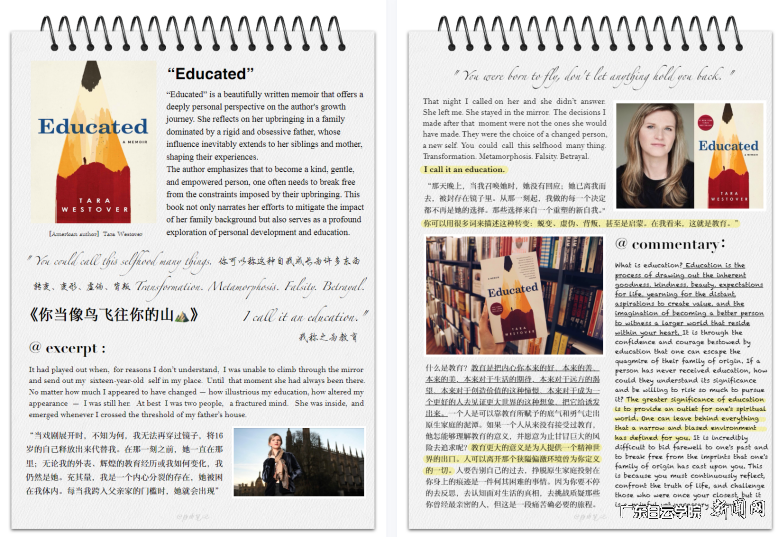 Educated
A MEMOIR
TARA
WESTOVER
[American author] Tara Westover
“Educated”
"Educated" is a beautifully written memoir that offers a
deeply personal perspective on the author's growth
journey. She reflects on her upbringing in a family
dominated by a rigid and obsessive father, whose
influence inevitably extends to her siblings and mother,
shaping their experiences.
The author emphasizes that to become a kind, gentle,
and empowered person, one often needs to break free
from the constraints imposed by their upbringing. This
book not only narrates her efforts to mitigate the impact
of her family background but also serves as a profound
exploration of personal development and education.
"You could call this selfhood many things. 你可以称这种自我成长为许多东西
转变、变形、虚伪、背叛 Transformation. Metamorphosis. Falsity. Betrayal.
《你当像鸟飞往你的山》 I call it an education."
我称之为教育
@ excerpt :
It had played out when, for reasons I don't understand, I was unable to climb through the mirror
and send out my sixteen-year-old self in my place. Until that moment she had always been there.
No matter how much I appeared to have changed — how illustrious my education, how altered my
appearance — I was still her. At best I was two people, a fractured mind. She was inside, and
emerged whenever I crossed the threshold of my father's house.
“当戏剧展开时，不知为何，我无法再穿过镜子，将16
岁的自己释放出来代替我。在那一刻之前，她一直在那
里；无论我的外表、辉煌的教育经历或我如何变化，我
仍然是她。充其量，我是一个内心分裂的存在，她被困
在我体内。每当我跨入父亲家的门槛时，她就会出现”
" You were born to fly, don't let anything hold you back. "
That night I called on her and she didn't answer.
She left me. She stayed in the mirror. The decisions I
made after that moment were not the ones she would
have made. They were the choice of a changed person,
a new self. You could call this selfhood many thing.
Transformation. Metamorphosis. Falsity. Betrayal.
I call it an education.
Educated
TARA
WESTOVER
“那天晚上，当我召唤她时，她没有回应；她已离我而
去，被封存在镜子里。从那一刻起，我做的每一个决定
都不再是她的选择。那些选择来自一个重塑的新自我。”
你可以用很多词来描述这种转变：蜕变、虚伪、背叛，甚至是启蒙。在我看来，这就是教育。”
Educated
TARA
WESTOVER
@ commentary:
What is education? Education is the
process of drawing out the inherent
goodness, kindness, beauty, expectations
for life, yearning for the distant,
aspirations to create value, and the
imagination of becoming a better person
to witness a larger world that reside
within your heart. It is through the
confidence and courage bestowed by
education that one can escape the
quagmire of their family of origin. If a
person has never received education, how
could they understand its significance
and be willing to risk so much to pursue
it? The greater significance of education
is to provide an outlet for one's spiritual
world. One can leave behind everything
that a narrow and biased environment
has defined for you. It is incredibly
difficult to bid farewell to one's past and
to break free from the imprints that one's
family of origin has cast upon you. This
is because you must continuously reflect,
confront the truth of life, and challenge
those who were once your closest, but it
什么是教育？教育是把内心你本来的好、本来的善、
本来的美、本来对于生活的期待、本来对于远方的渴
望、本来对于创造价值的这种憧憬、本来对于成为一
个更好的人去见证更大世界的这种想象，把它给诱发
出来。一个人是可以靠教育所赋予的底气和勇气走出
原生家庭的泥潭。如果一个人从来没有接受过教育，
他怎能够理解教育的意义，并愿意为止甘冒巨大的风
险去追求。教育更大的意义是为人提供一个精神世
界的出口。人可以离开那个狭隘偏激环境曾为你定义
的一切。人要告别自己的过去，挣脱原生家庭投射在
你身上的痕迹是一件何其困难的事情。因为你要不停
的去反思，去认知面对生活的真相，去挑战质疑那些
你曾经最亲密的人，但这是一段痛苦确必要的旅程。
广东白云学院 新闻网